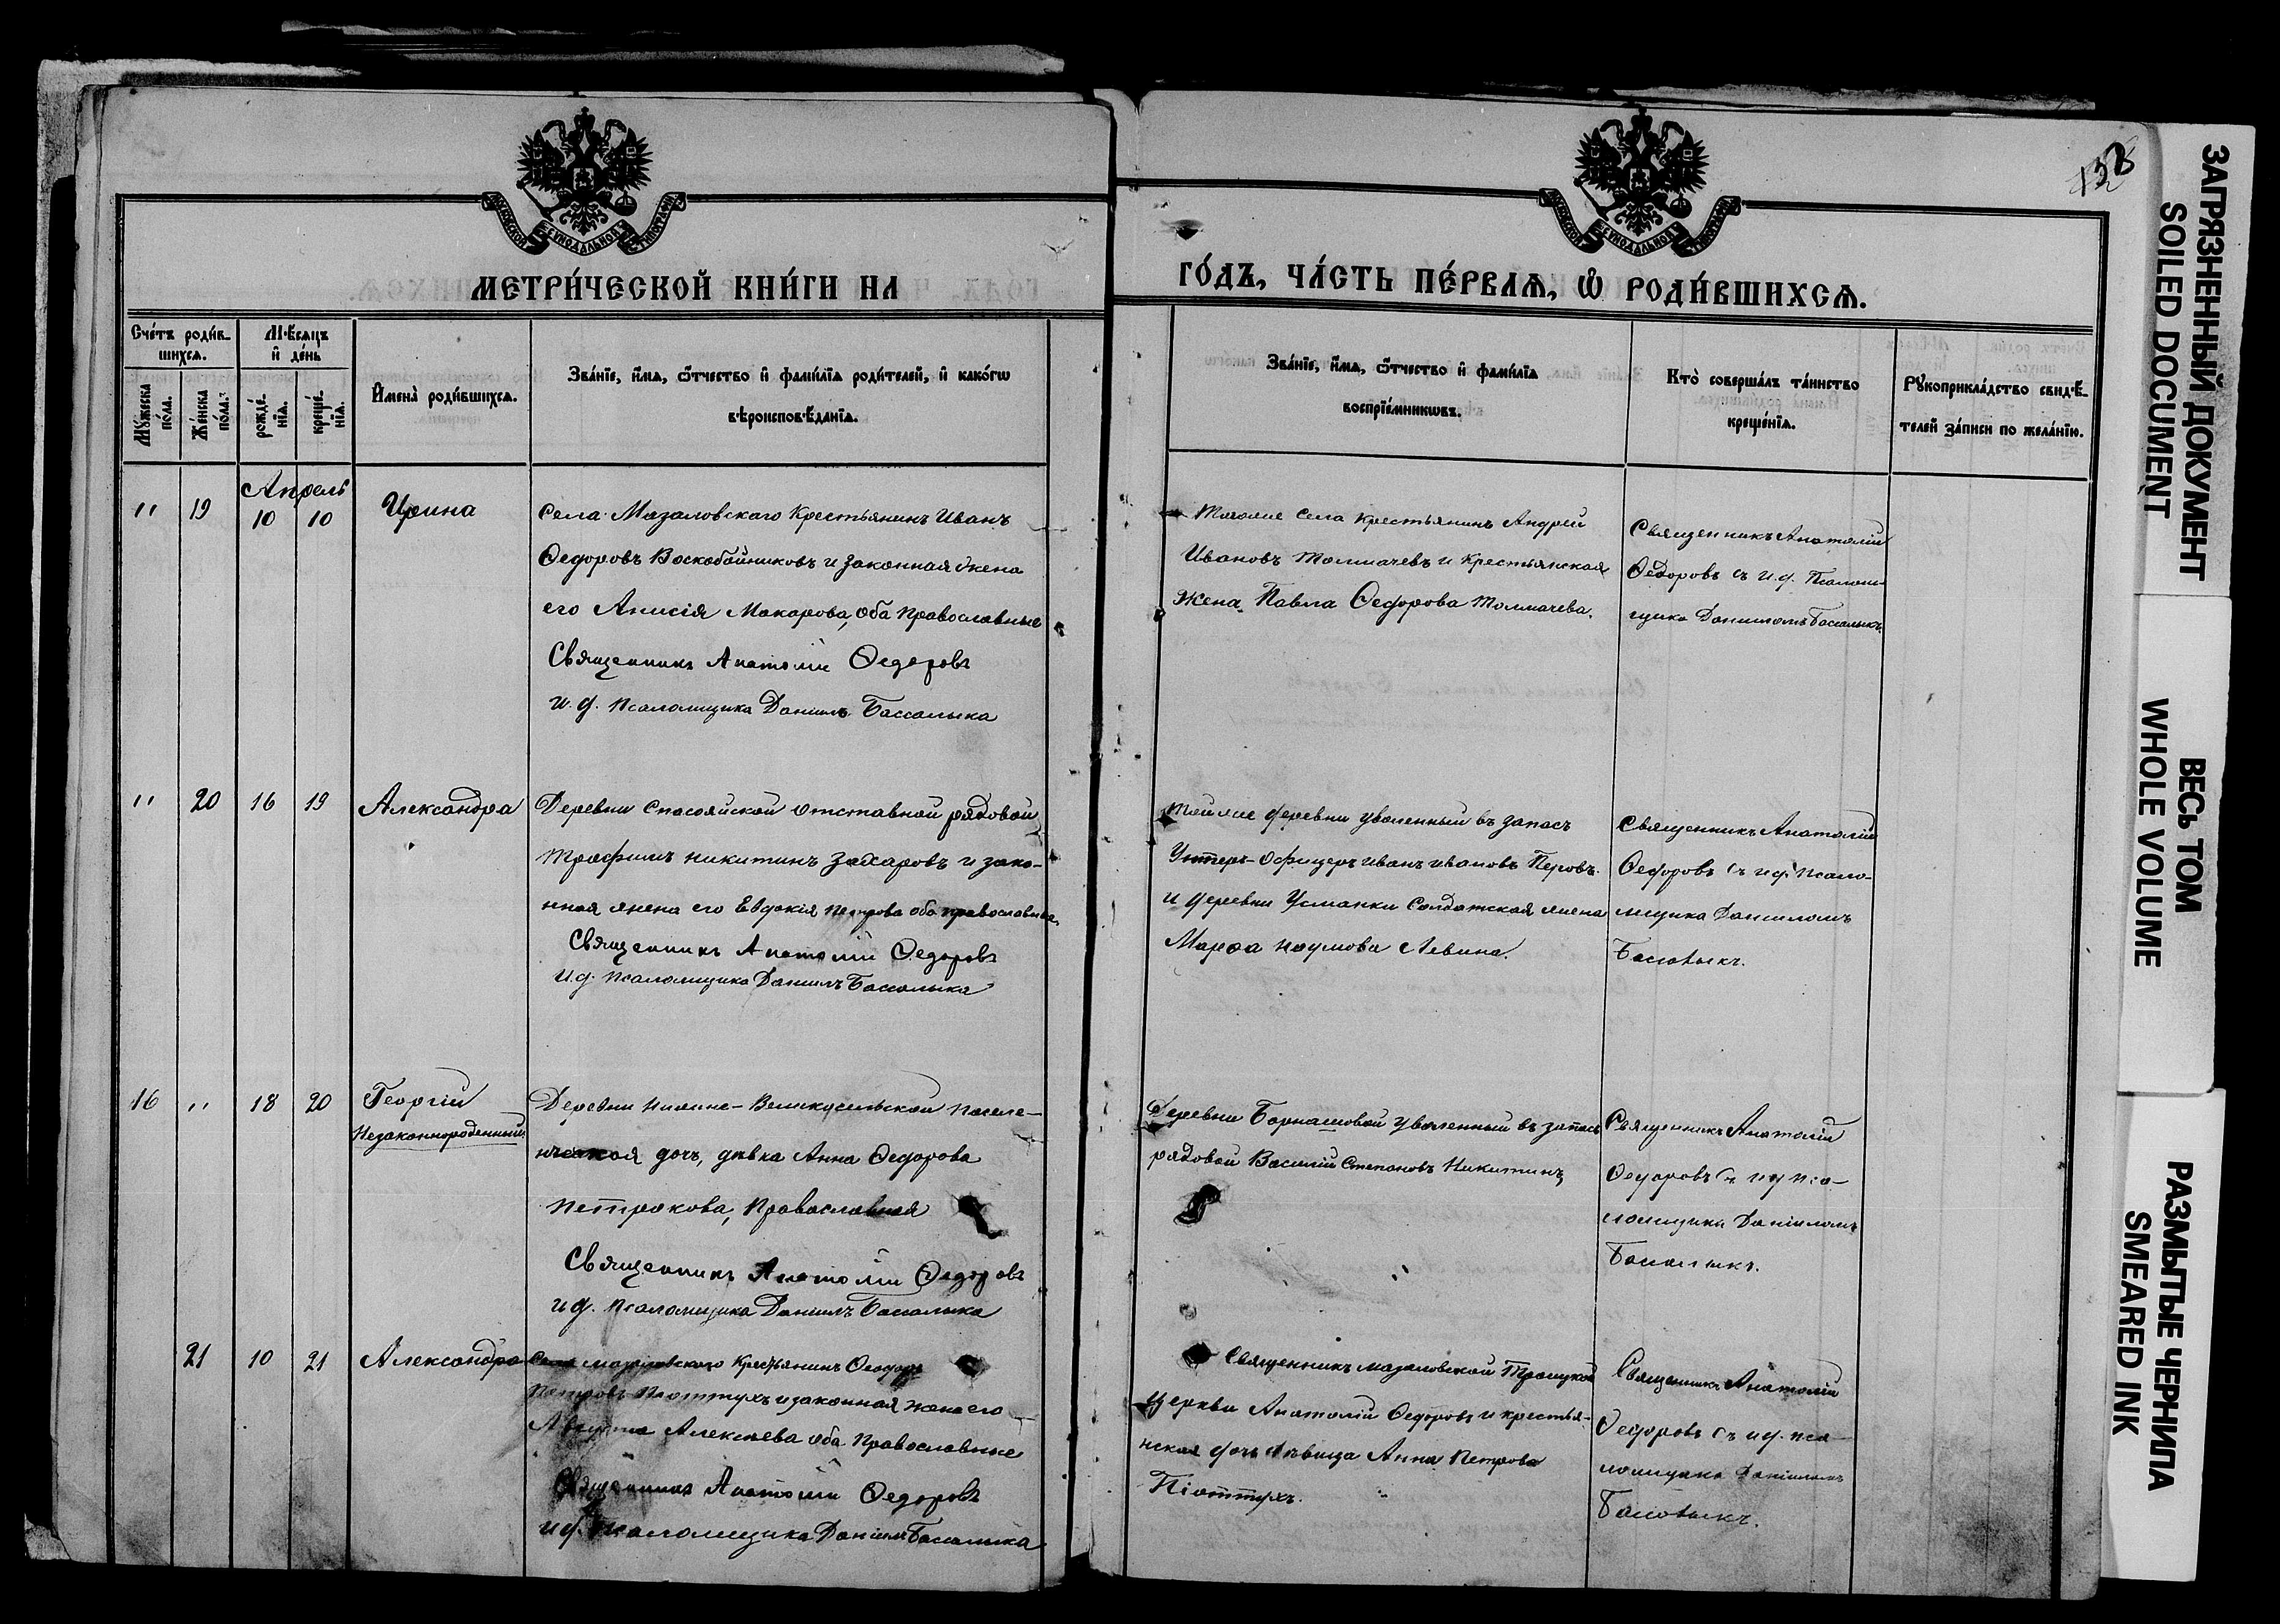 138
МОСКОВСКОЙ СУНОДАЛЬНОЙ ТИПОГРАФІИ
МОСКОВСКОЙ СУНОДАЛЬНОЙ ТИПОГРАФІИ
МЕТРИ́ЧЕСКОЙ КНИ́ГИ НА
ГО́ДЪ, ЧА́СТЬ ПЕ́РВАѦ, Ѽ РОДИ́ВШИХСѦ.
Сче́тъ роди́в-
шихсѧ.
Мѣ́сяцъ
и҆ де́нь
Мꙋ́жеска
по́ла.
Же́нска
по́ла.
рожде́-
нїѧ.
креще́-
нїѧ.
И҆мена̀ роди́вшихсѧ.
Зва́нїе, и҆́мѧ, ѻ҆́тчество и҆ фами́лїѧ роди́телей, и҆ како́гѡ
вѣроисповѣ́данїѧ.
Зва́нїе, и҆́мѧ, ѻ҆́тчество и҆ фами́лїѧ
воспрїе́мникѡвъ.
Кто̀ соверша́лъ та́инство
креще́нїѧ.
Рꙋкоприкла́дство свидѣ́-
телей за́писи по жела́нїю.
Апрель
" 19 10 10 Ирина
Села Мазаловскаго Крестьянинъ Иванъ
Ѳедоровъ Воскобойниковъ и законная жена
его Анисія Макарова, оба Православные
Священникъ Анатолій Ѳедоровъ
и. д. Псаломщика Даніилъ Бассалыка
Тогоже Села Крестьянинъ Андрей
Ивановъ Толмачевъ и Крестьянская
жена Павла Ѳедорова Толмачева.
Священникъ Анатолій
Ѳедоровъ съ и. д. Псалом-
щика Даніиломъ Бассалыкъ.
" 20 16 19 Александра
Деревни Спасояйской отставной рядовой
Трофимъ Никитинъ Захаровъ и зако-
нная жена его Евдокія Петрова оба православные
Священникъ Анатолій Ѳедоровъ
и. д. Псаломщика Даніилъ Бассалыка
Тойже деревни уволенный въ запасъ
Унтеръ-Офицеръ Иванъ Ивановъ Перовъ.
и деревни Усманки Солдатская жена
Марѳа Наумова Левина.
Священникъ Анатолій
Ѳедоровъ съ и. д. Псало-
мщика Даніиломъ
16 " 18 20 Георгій
Незаконнорожденный.
Деревни Нижне-Великосельской поселе-
нческая дочь, дѣвка Анна Ѳедорова
Петракова, Православная
Священникъ Анатолій Ѳедоровъ
и. д. Псаломщика Даніилъ Бассалыка
Деревни Барнашовой уволенный въ запасъ
рядовой Василій Степановъ Никитинъ
Священникъ Анатолій
Ѳедоровъ съ и д Пса-
ломщика Даніиломъ
21 10 21 Александра
Села Мазаловскаго Крестьянинъ Ѳеодоръ
Петровъ Піоттухъ и законная жена его
Августа Алексѣева оба Православные
Священникъ Анатолій Ѳедоровъ
и. д. Псаломщика Даніилъ Бассалыка
Священникъ Мазаловской Троицкой
Церкви Анатолій Ѳедоровъ и крестья-
нская дочь дѣвица Анна Петрова
Піоттухъ.
Священникъ Анатолій
Ѳедоровъ съ и. д. пса-
ломщика Даніиломъ
ЗАГРЯЗНЕННЫЙ ДОКУМЕНТ
SOILED DOCUMENT
ВЕСЬ ТОМ
WHOLE VOLUME
РАЗМЫТЫЕ ЧЕРНИЛА
SMEARED INK